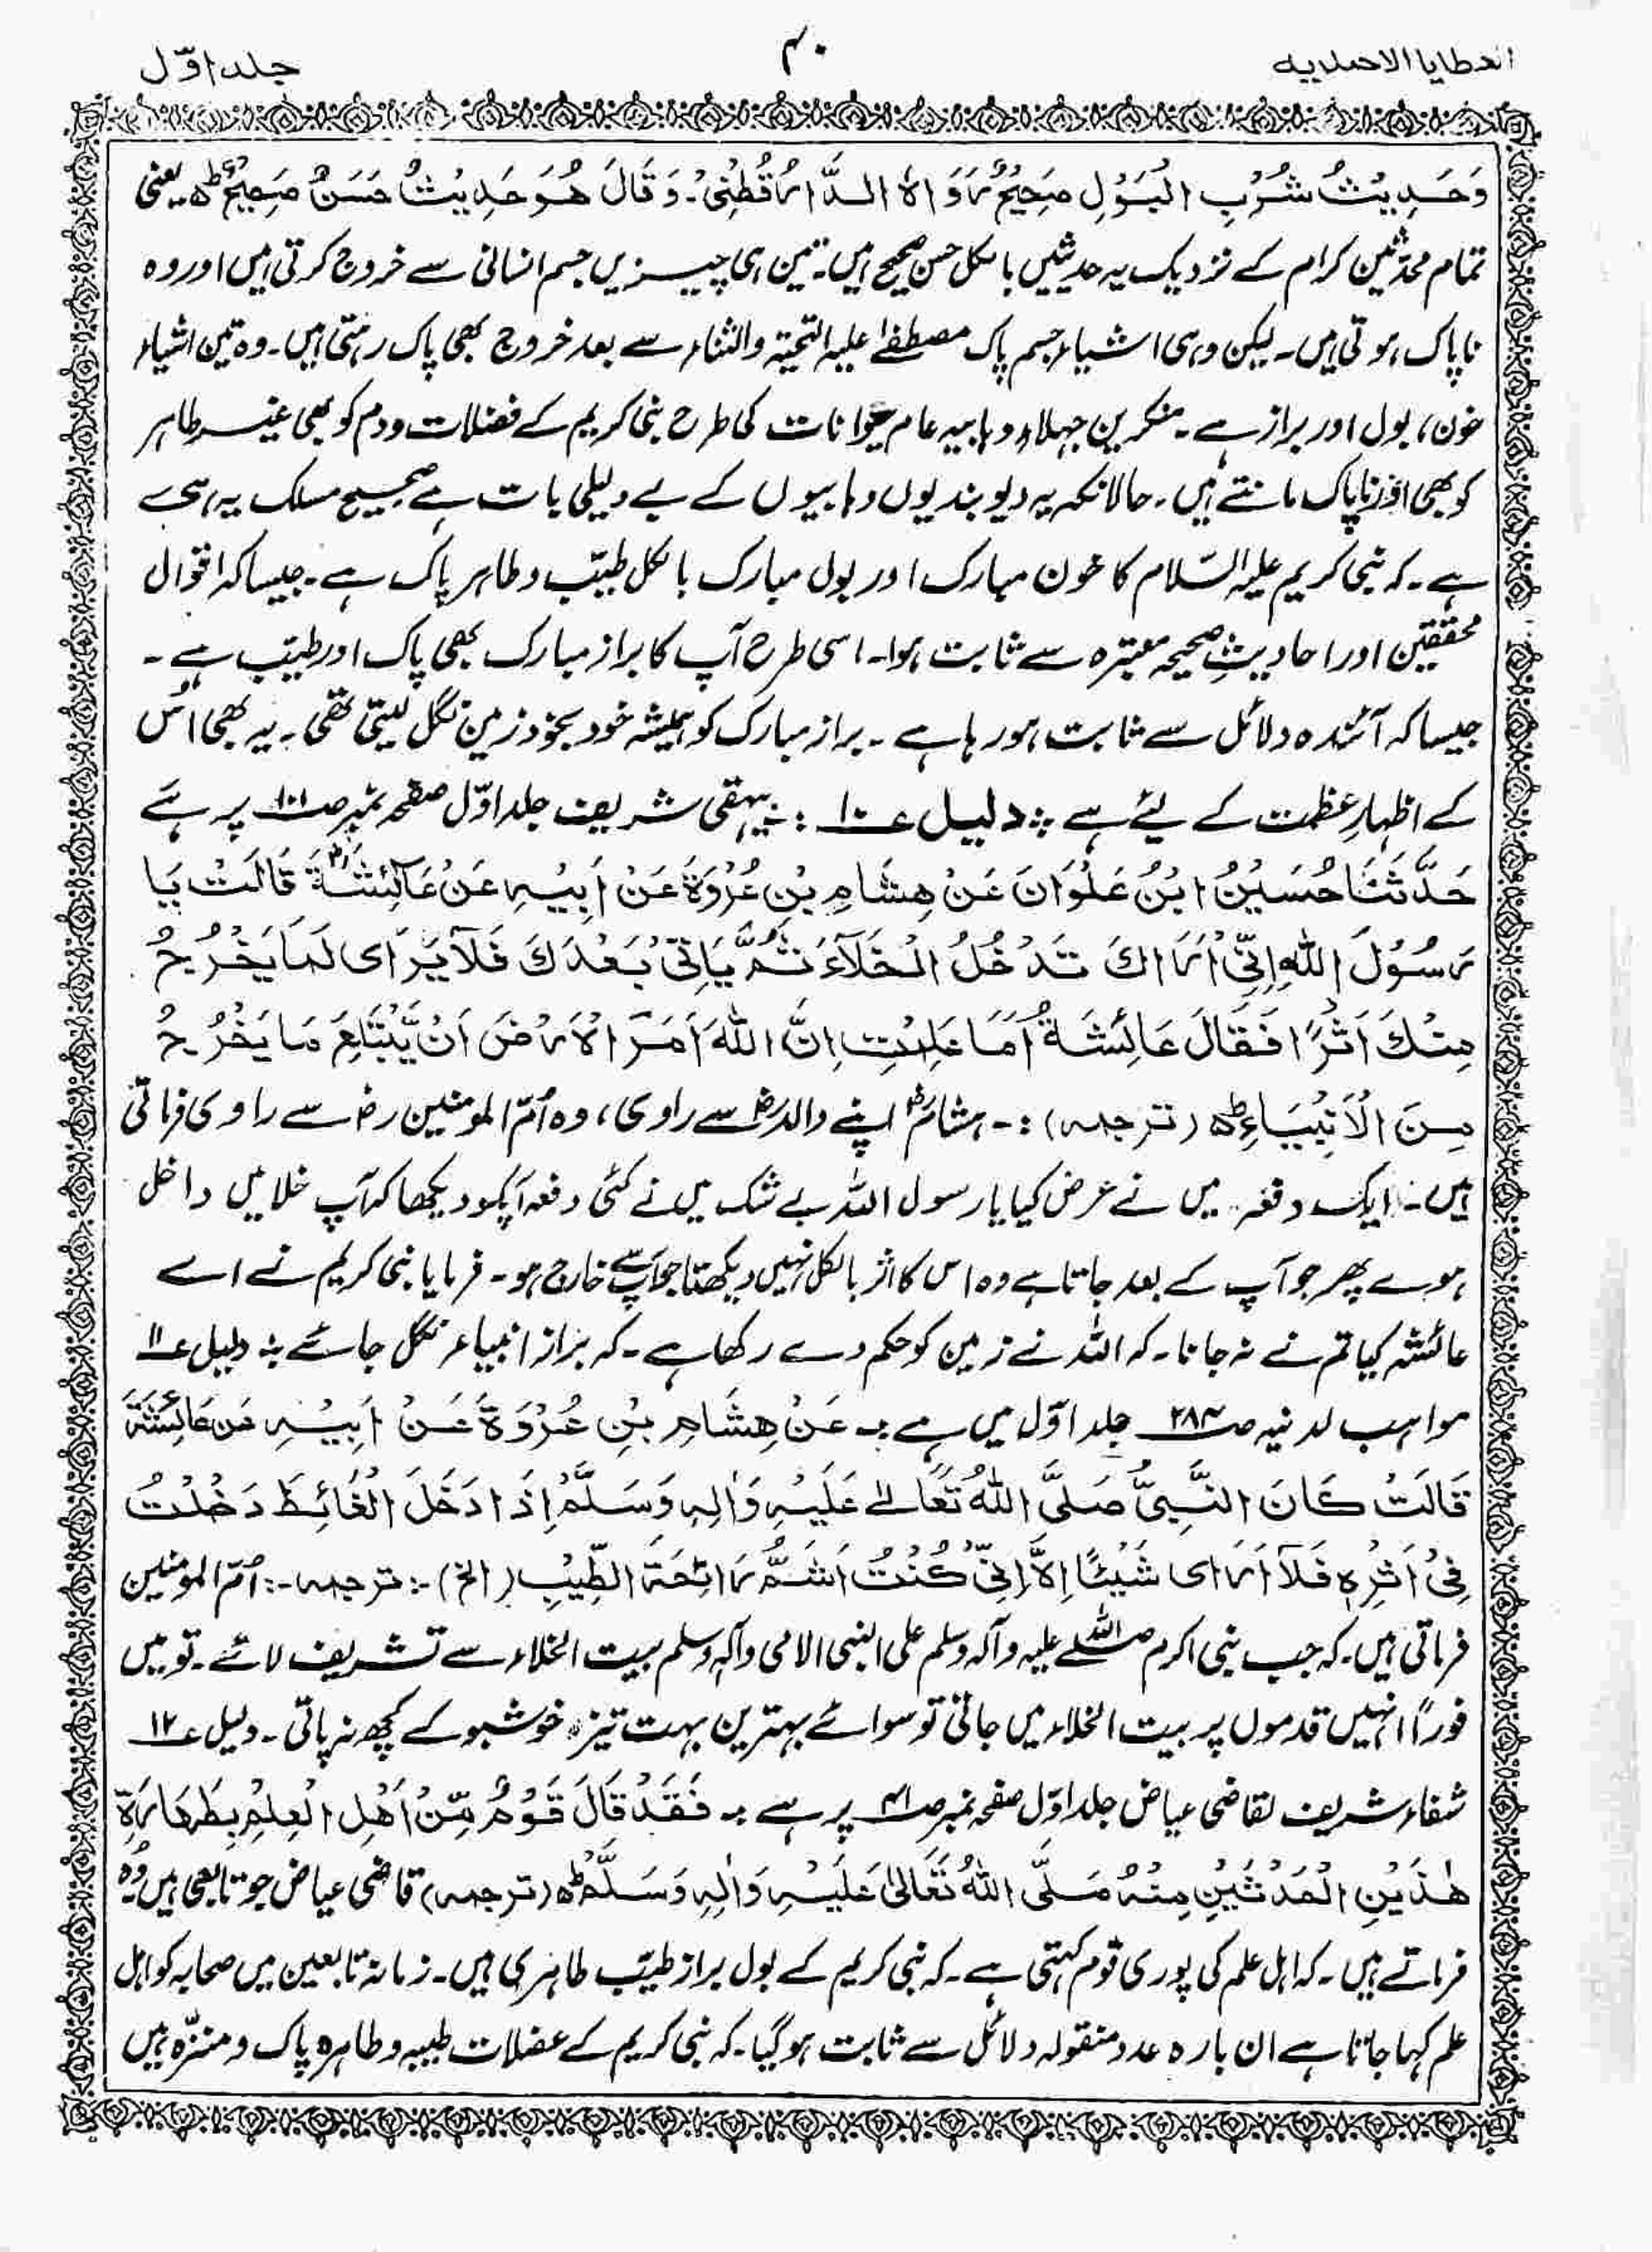 العطایا الاحمدیه
۴۰
جلد اوّل
وَحَدِیْثُ شُرْبِ الْبَوْلِ صَحِیْحٌ رَوَاہُ الدَّارُ قُطْنِیْ۔ وَقَالَ ھُوَ حَدِیْثٌ حَسَنٌ صَحِیْحٌ ط یعنی
تمام محدّثین کرام کے نزدیک یہ حدیثیں بالکل حسن صحیح ہیں۔ تین ہی چیزیں جسم انسانی سے خروج کرتی ہیں اور وہ
ناپاک ہوتی ہیں۔ لیکن وہی اشیاء جسم پاک مصطفےٰ علیہ التحیۃ والثناء سے بعد خروج بھی پاک رہتی ہیں۔ وہ تین اشیاء
خون، بول اور براز ہے۔ منکرین جہلاء وہابیہ عام حیوانات کی طرح نبی کریم کے فضلات و دم کو بھی غیر طاہر
کو بھی اور ناپاک مانتے ہیں۔ حالانکہ یہ دیوبندیوں وہابیوں کے بے دلیلی بات ہے صحیح مسلک یہ ہی ہے
ہے۔ کہ نبی کریم علیہ السّلام کا خون مبارک اور بول مبارک بالکل طیّب و طاہر پاک ہے۔ جیسا کہ اقوال
محققین اور احادیثِ صحیحہ معتبرہ سے ثابت ہوا۔ اسی طرح آپ کا براز مبارک بھی پاک اور طیّب ہے۔
جیسا کہ آئندہ دلائل سے ثابت ہو رہا ہے۔ براز مبارک کو ہمیشہ خود بخود زمین نگل لیتی تھی۔ یہ بھی اُس
کے اظہارِ عظمت کے لیئے ہے ؛ دلیل ؏۱۰ : بیہقی شریف جلد اوّل صفحہ نمبر صـ۱۰۱ پر ہے
حَدَّثَنَا حُسَیْنُ ابْنُ عَلْوَانَ عَنْ ھِشَامِ بْنِ عُرْوَۃَ عَنْ اَبِیْہِ عَنْ عَائِشَۃَ قَالَتْ یَا
رَسُوْلَ اللّٰہِ اِنِّیْ اَرَاکَ تَدْخُلُ الْخَلَآءَ ثُمَّ یَاْتِیْ بَعْدَکَ فَلَا یَرَای لَمَا یَخْرُجُ
مِنْکَ اَثْرًا فَقَالَ عَائِشَۃُ اَمَا عَلِمْتِ اِنَّ اللّٰہَ اَمَرَ الْاَرْضَ اَنْ یَّبْتَلِعَ مَا یَخْرُجُ
مِنَ الْاَنْبِیَاءِ ط (ترجمہ) :۔ ہشام اپنے والد سے راوی، وہ اُمّ المومنین رض سے راوی فرماتی
ہیں۔ ایک دفعہ میں نے عرض کیا یا رسول اللّٰہ بے شک میں نے کئی دفعہ آپکو دیکھا کہ آپ خلا میں داخل
ہوے پھر جو آپ کے بعد جاتا ہے وہ اس کا اثر بالکل نہیں دیکھتا جو آپ سے خارج ہو۔ فرمایا نبی کریم نے اے
عائشہ کیا تم نے نہ جانا۔ کہ اللّٰہ نے زمین کو حکم دے رکھا ہے۔ کہ براز انبیاء نگل جائے ؛ دلیل ؏۱۱
مواہب لدنیہ صـ۲۸۴ جلد اوّل میں ہے :۔ عَنْ ھِشَامِ بْنِ عُرْوَۃَ عَنْ اَبِیْہِ عَنْ عَائِشَۃَ
قَالَتْ کَانَ النَّبِیُّ صَلَّی اللّٰہُ تَعَالٰے عَلَیْہِ وَاٰلِہٖ وَسَلَّمْ اِذَا دَخَلَ الْغَائِطَ دَخَلْتُ
فِیْ اَثْرِہٖ فَلَا اَرَای شَیْئًا اِلَّا اِنِّیْ کُنْتُ اَشَمُّ رَائِحَۃَ الطِّیْبِ (الخ) :۔ ترجمہ :۔ اُمّ المومنین
فرماتی ہیں۔ کہ جب نبی اکرم صلی اللّٰہ علیہ وآلہ وسلم علی النبی الامی وآلہ وسلم بیت الخلاء سے تشریف لائے۔ تو میں
فوراً انہیں قدموں پر بیت الخلاء میں جاتی تو سوائے بہترین بہت تیز خوشبو کے کچھ نہ پاتی۔ دلیل ؏۱۲
شفاء شریف لقاضی عیاض جلد اوّل صفحہ نمبر صـ۴۱ پر ہے :۔ فَقَدْ قَالَ قَوْمٌ مِّنْ اَھْلِ الْعِلْمِ بِطَھَارَۃِ
ھٰذَیْنِ الْحَدَثَیْنِ مِنْہُ صَلَّی اللّٰہُ تَعَالیٰ عَلَیْہِ وَاٰلِہٖ وَسَلَّمْ ط (ترجمہ) قاضی عیاض جو تابعی ہیں وُہ
فرماتے ہیں۔ کہ اہل علم کی پوری قوم کہتی ہے۔ کہ نبی کریم کے بول براز طیّب طاہر ہی ہیں۔ زمانہ تابعین میں صحابہ کو اہل
علم کہا جاتا ہے ان بارہ عدد منقولہ دلائل سے ثابت ہو گیا۔ کہ نبی کریم کے عضلات طیبہ و طاہرہ پاک و منزّہ ہیں